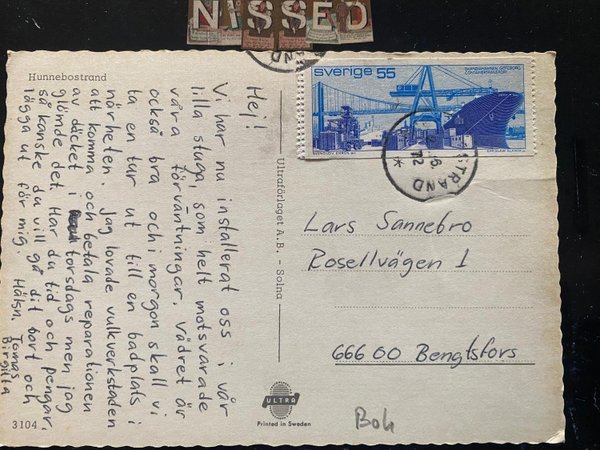 NISSED
Hunnebostrand
STRAND
Hej!
Vi har nu installerat oss i vår
lilla stuga, som helt motsvarade
våra förväntningar. Vädret är
också bra och i morgon skall vi
ta en tur ut till en badplats i
närheten. Jag lovade vulkverkstaden
att komma och betala reparationen
av däcket i torsdags men jag
glömde det. Har du tid och pengar,
så kanske du vill gå dit bort och
lägga ut för mig. Hälsn. Tomas
Birgitta
3104
Ultraförlaget A.B. - Solna
ULTRA
Printed in Sweden
sverige 55
SKANDIAHAMNEN, GÖTEBORG
CONTAINERTRANSPORT
STRAND
Lars Sannebro
Rosellvägen 1
666 00 Bengtsfors
Boh